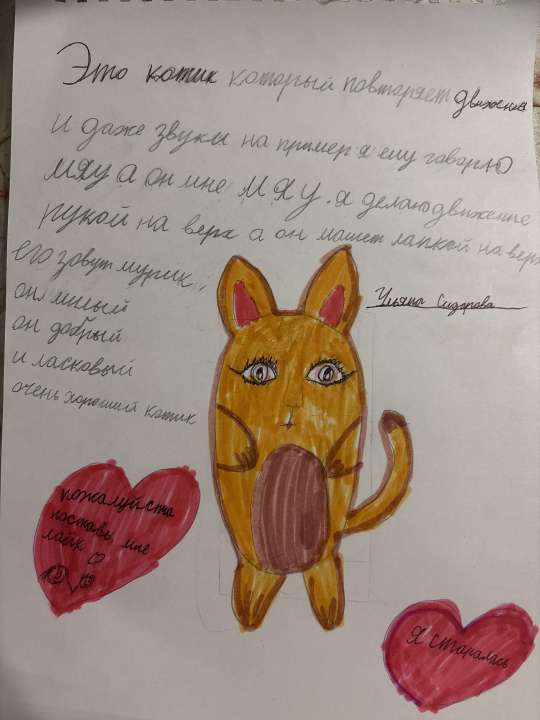 Это котик который повторяет движения
И даже звуки на пример я ему говорю
мяу а он мне мяу. я делаю движение
рукой на верх а он машет лапкой на верх
его зовут мурик,,
он милый
он добрый
и ласковый
очень хороший котик
Ульяна Сидорова
пожалуйста
поставь мне
лайк
я старалась